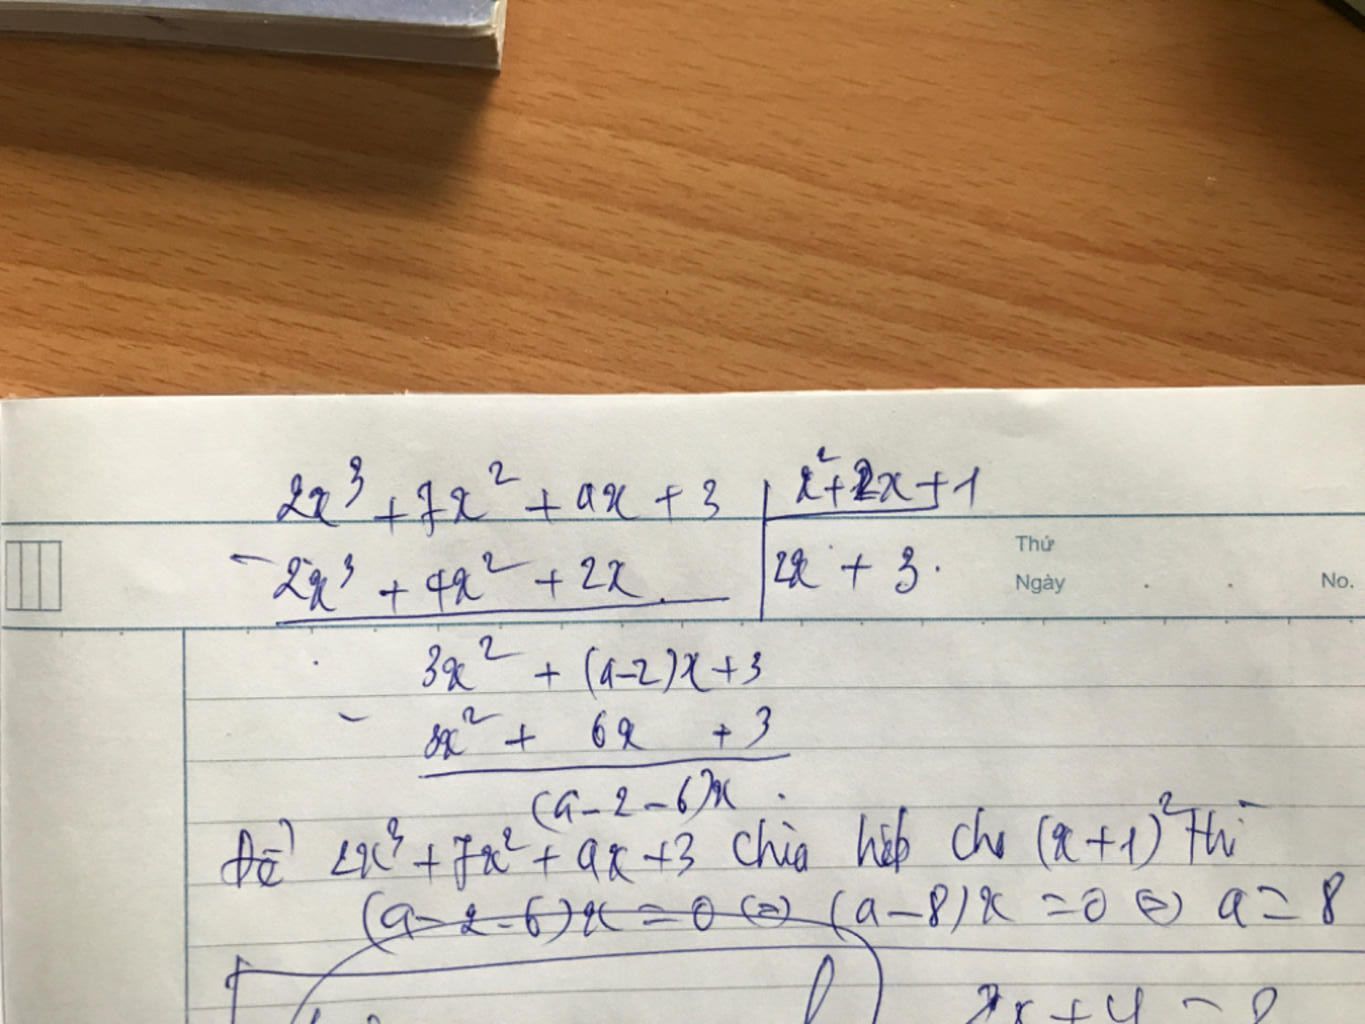 2x³ + 7x² + ax + 3 | x² + 2x + 1
- 2x³ + 4x² + 2x | 2x + 3.
Thứ
Ngày . . No.
3x² + (a-2)x + 3
- 3x² + 6x + 3
(a-2-6)x.
Để 2x³ + 7x² + ax + 3 chia hết cho (x+1)² thì
(a-2-6)x = 0 ⇔ (a-8)x = 0 ⇔ a = 8